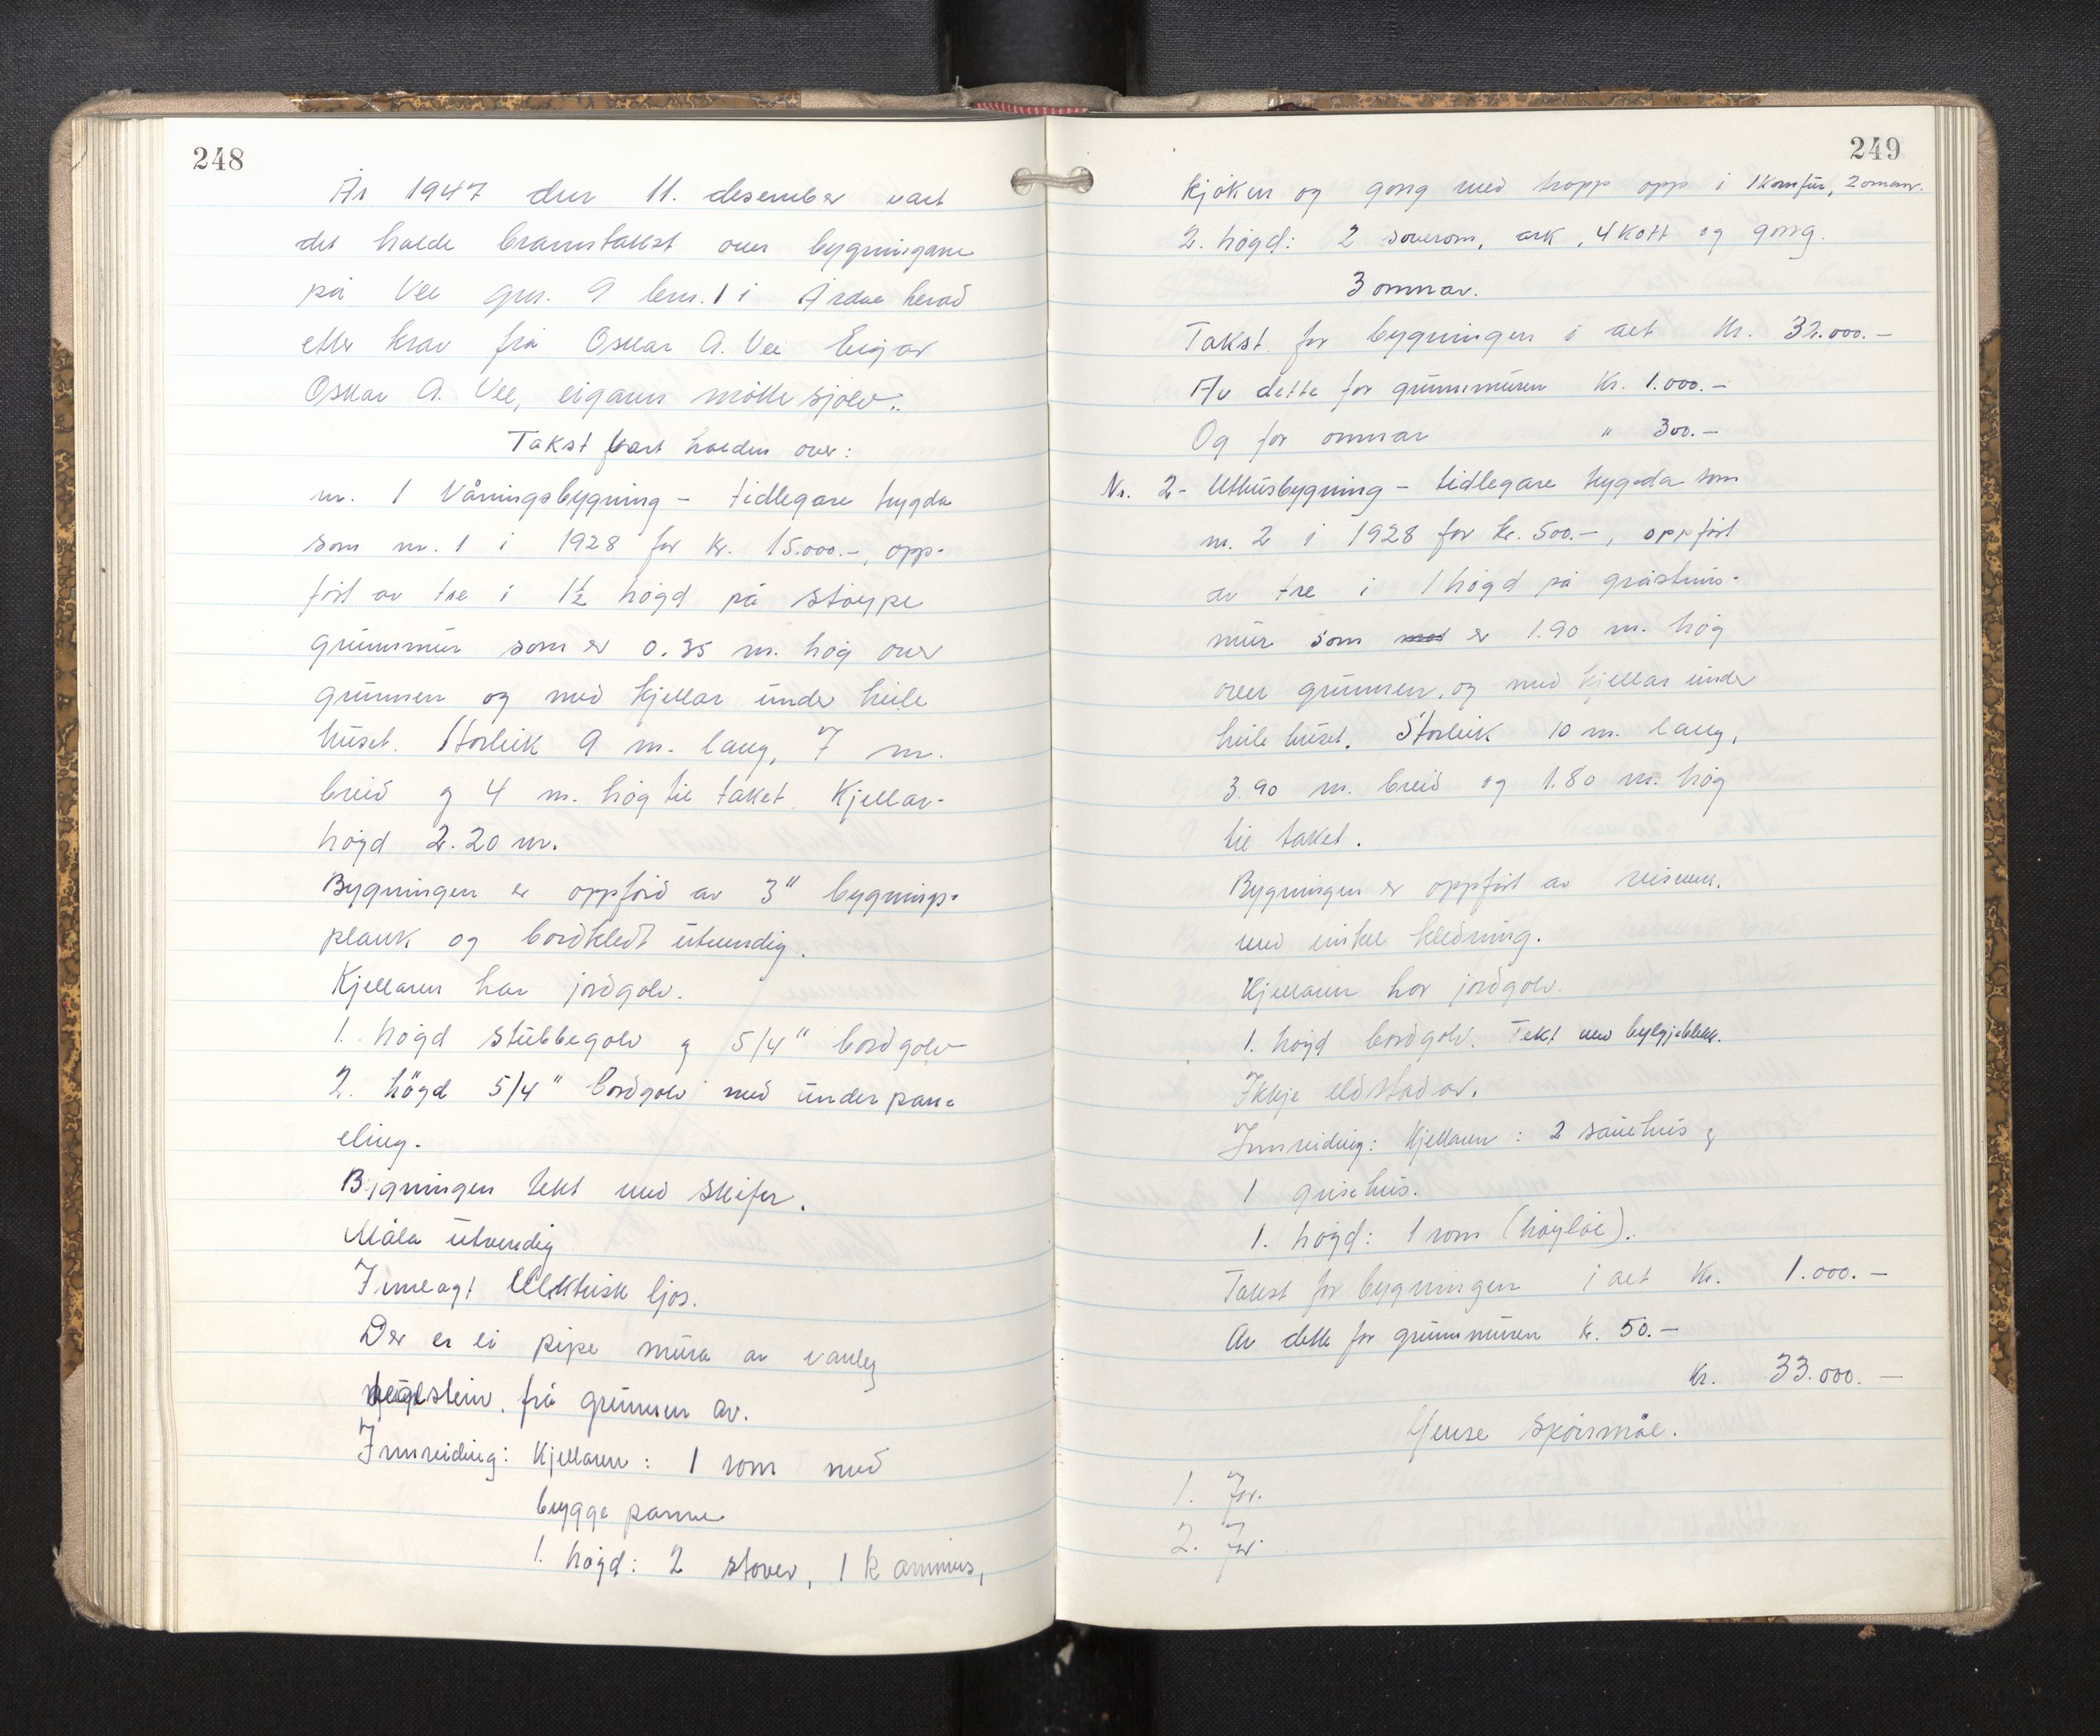 248
År 1947 den 11. desember vart
det halde branntakst over bygningane
på Vee gnr. 9 bnr. 1 i Årdal herad
etter krav frå Oskar A. Vee Eigar
Oskar A. Vee, eigaren møtte sjølv.
Takst vart halden over:
nr. 1 Våningsbygning - tidlegare trygda
som nr. 1 i 1928 for kr. 15.000.-, opp-
ført av tre i 1½ høgd på støype
grunnmur som er 0.35 m. høg over
grunnen og med kjellar under heile
huset. Storleik 9 m. lang, 7 m.
breid og 4 m. høg til taket. Kjellar-
høgd 2.20 m.
Bygningen er oppførd av 3" bygnings-
plank og bordkledt utvendig.
Kjellaren har jordgolv.
1. høgd stubbegolv og 5/4" bordgolv
2. høgd 5/4" bordgolv med underpan-
eling.
Bygningen tekt med skifer.
Måla utvendig
Innlagt elektrisk ljos.
Der er ei pipe mura av vanleg
teglstein. frå grunnen av.
Innreiding: Kjellaren: 1 rom med
bryggepanne
1. høgd: 2 stover, 1 kammers,
249
kjøken og gong med tropp opp i 1 komfur, 2 omnar.
2. høgd: 2 soverom, ark, 4 kott og gong.
3 omnar.
Takst for bygningen i alt Kr. 32.000.-
Av dette for grunnmuren Kr. 1.000.-
Og for omnar " 300.-
Nr. 2- Uthusbygning - tidlegare trygda som
nr. 2 i 1928 for kr. 500.-, oppført
av tre i 1 høgd på gråsteins-
mur som er 1.90 m. høg
over grunnen. og med kjellar under
heile huset. Storleik 10 m. lang,
3.90 m. breid og 1.80 m. høg
til taket.
Bygningen er oppført av reisverk.
med enkel kledning.
Kjellaren har jordgolv.
1. høgd bordgolv. Tekt med bylgjeblekk.
Ikkje eldstadar.
Innreiding: Kjellaren: 2 sauehus og
1 grisehus.
1. høgd: 1 rom (høyløe).
Takst for bygningen i alt Kr. 1.000.-
Av dette for grunnmuren Kr. 50.-
Kr. 33.000.-
Ymse spørsmål.
1. Ja.
2. Ja.